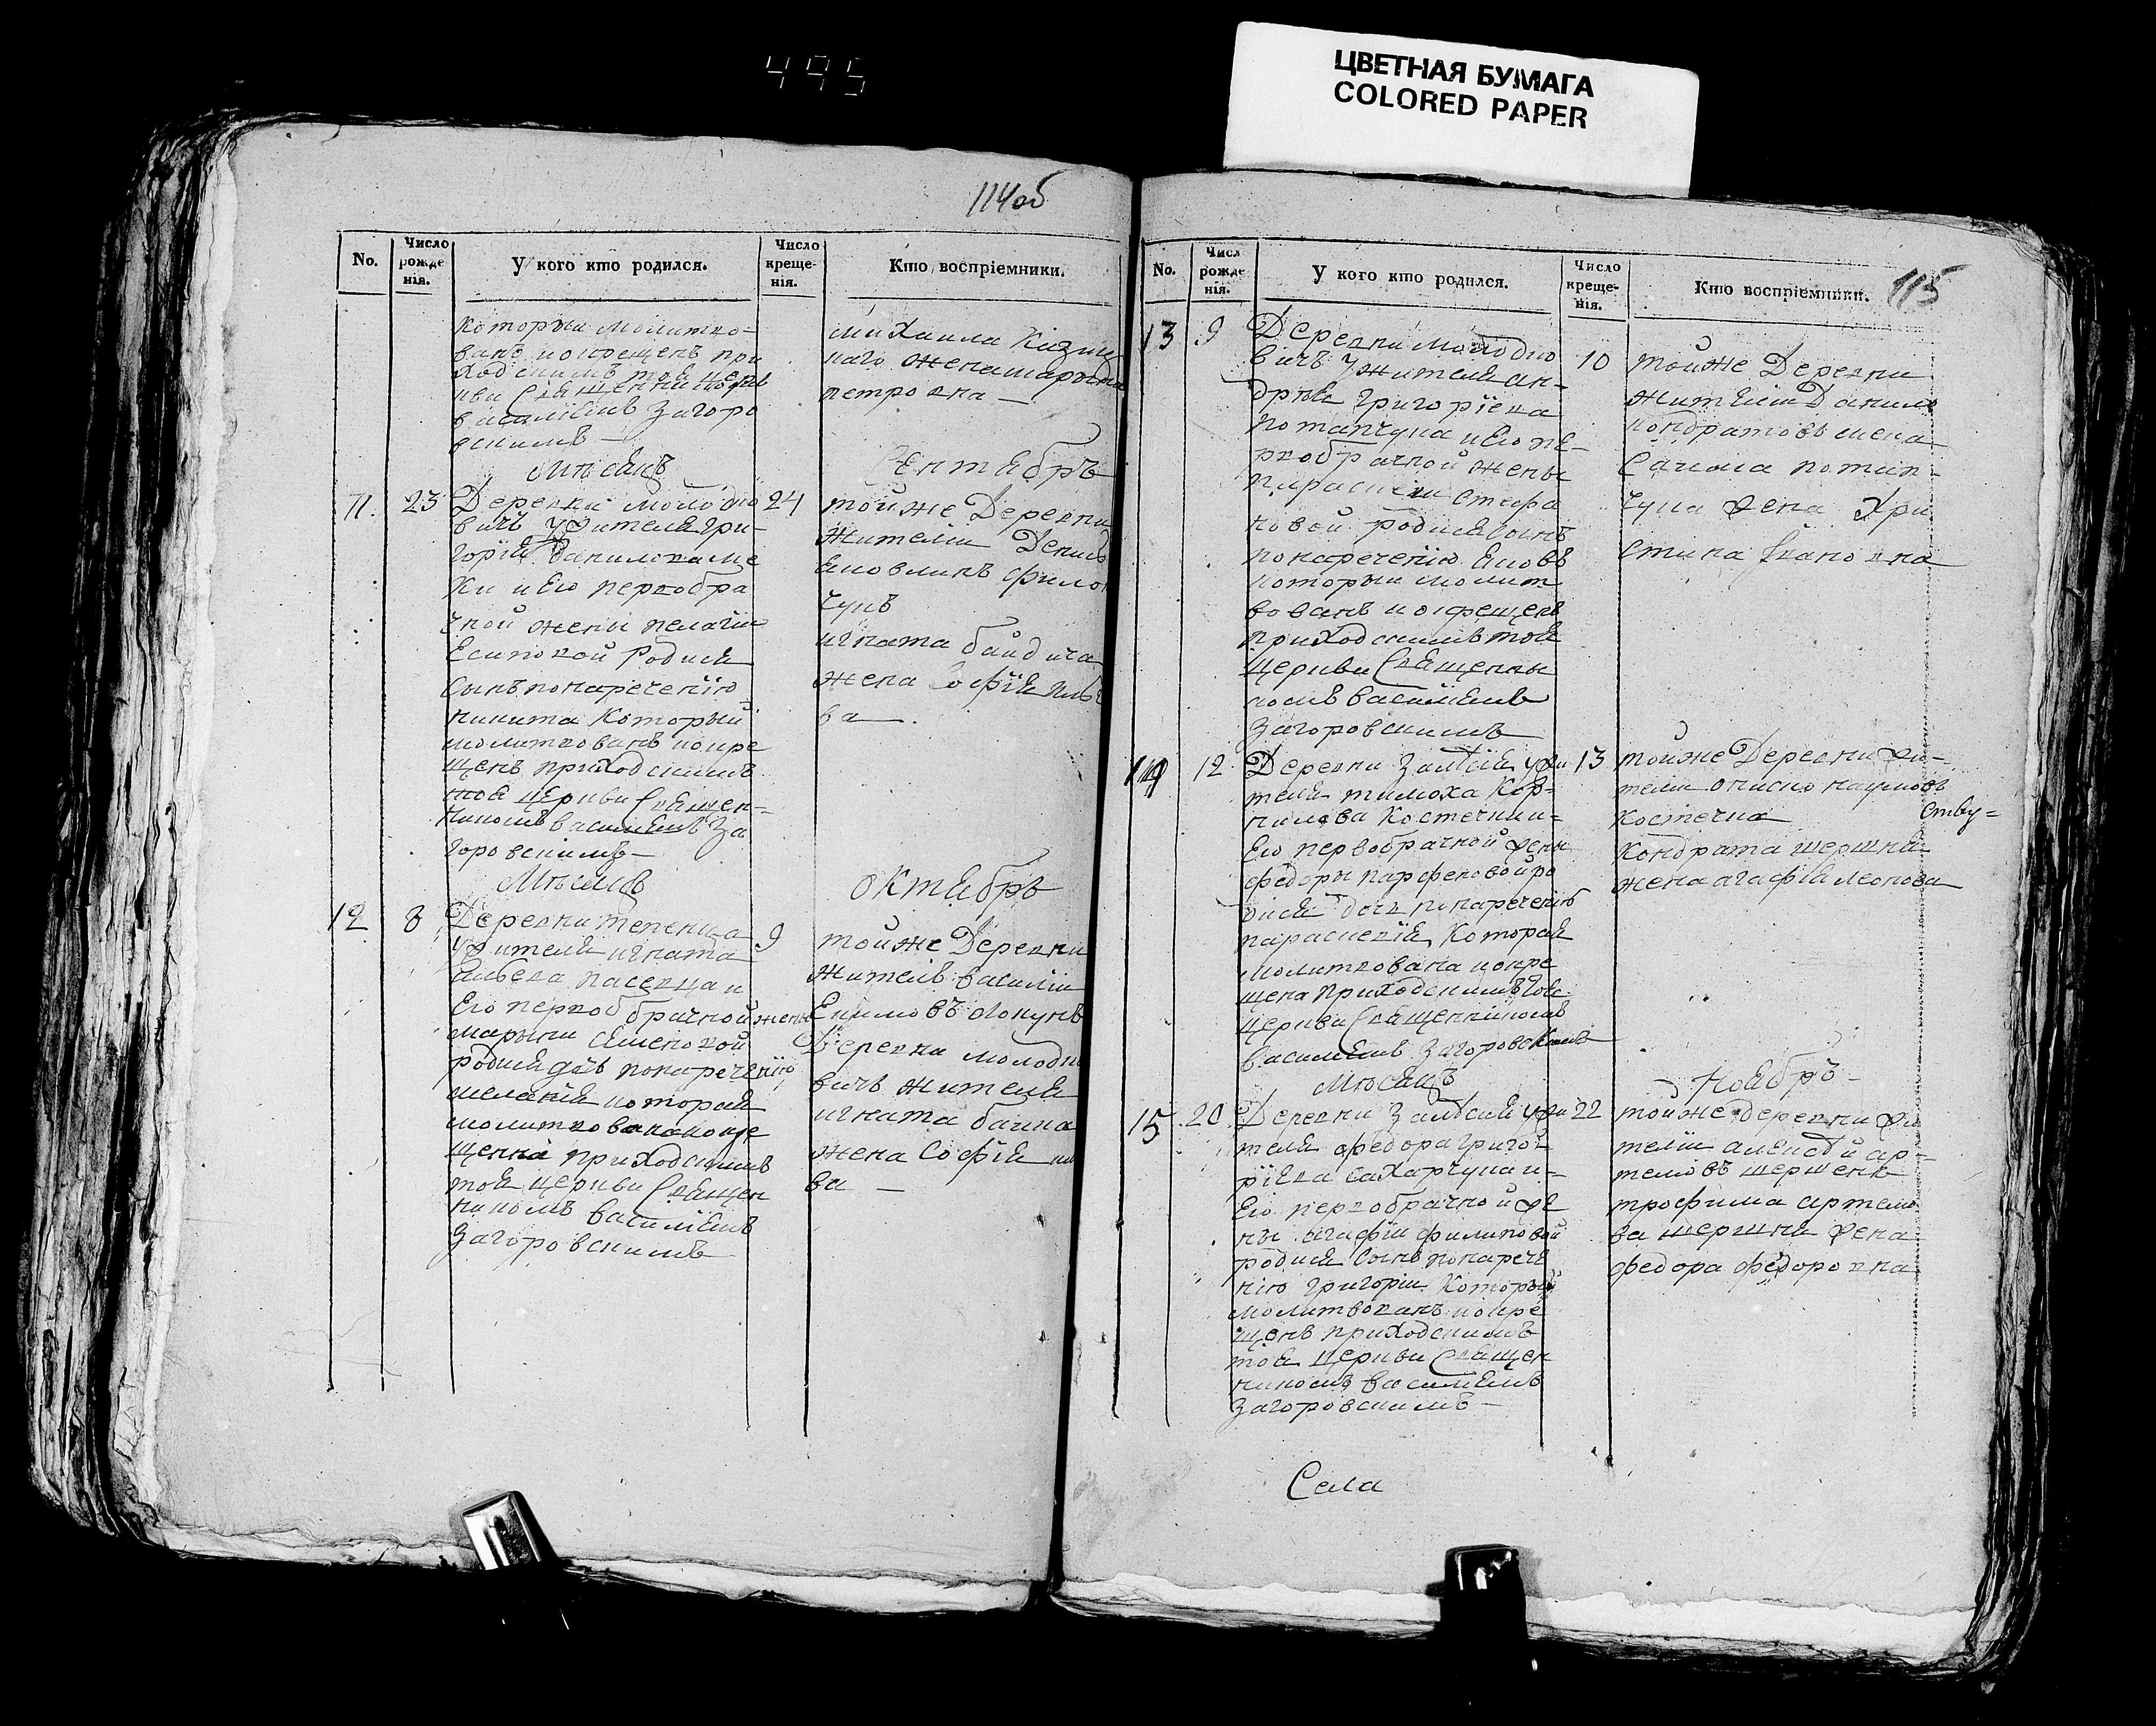 495
ЦВЕТНАЯ БУМАГА
COLORED PAPER
114об
No.
Число рожденія.
У кого кто родился.
Число крещенія.
Кто воспріемники.
которыи молитво-
ванъ и окрещенъ при
ходскимъ тоя цер
кви Священникомъ
василіемъ Загоро
вскимъ —
Михаила
наго жена марина
петровна —
Мѣсяцъ
Сентябръ
11.
23
Деревни молодко
вичъ у жителя гри-
горія Данилова
ки и Его первобра
чной жены пелагіи
Есиповой Родися
Сынъ по наречению
никита Который
молитвованъ и окре
щенъ приходскимъ
тоя церкви Священ-
никомъ василіемъ За
горовскимъ —
24
тойже Деревни
жители Денисъ
игната
жена Софія
ва —.
Мѣсяцъ
октябръ
12
8
Деревни тепенца
у жителя игната
пасевца и
Его первобрачной жены
марыны Семеновой
родися дчь по наречению
мелания которая
молитвована и окре
щенна приходскимъ
тоя церкви Священ
никомъ василіемъ
Загоровскимъ
9
тойже Деревни
житель василіи
Екимовъ
Деревни молодко
вичъ жителя
игната
жена Софія
ва —
115
No.
Числ рожденія.
У кого кто родился.
Число крещенія.
Кто воспріемники.
13
9
Деревни молодко
вичъ у жителя ан-
дрея григорїева
потапчука и Его пе-
рвобрачной жены
параскеви Стефа
новой родися сынъ
по наречению Яковъ
которыи молит
вованъ и окрещенъ
приходскимъ тоя
церкви Священни
комъ василіемъ
Загоровскимъ
10
тойже Деревни
жители Данило
кондратовъ
потап-
чука жена Хри
стина Ивановна
14
12
Деревни у жи
теля тимоха Кор-
нилова Костечки и-
Его первобрачной жены
федоры парфеновой ро
дися дочь по наречению
параскевїя Которая
молитвована и окре
щена приходскимъ тоя
церкви Священникомъ
василіемъ Загоровскимъ
13
тойже Деревни жи-
тели наумовъ
Костечка
Кондрата шершня
жена агафїя леонова
Мѣсяцъ
— Ноябръ —
15
20
Деревни у жи
теля федора григо
рїева сахарчука и-
Его первобрачной же
ны агафїи филиповой
родися Сынъ по нарече
нію григоріи Которыи
молитвованъ и окре
щенъ приходскимъ
тоя церкви Священ
никомъ василіемъ
Загоровскимъ —
22
тойже деревни жи
тели алексѣй ар-
темовъ шершень
трофима артемо
ва шершня жена
федора федоровна
Села